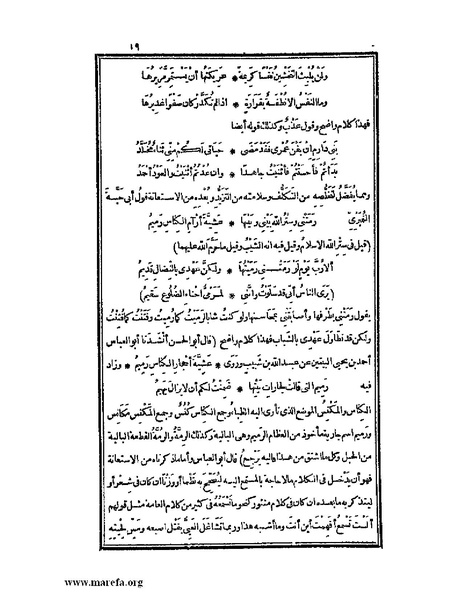 ١٩
ولن يلبث التخشين نفسا كريمة * عريكتها أن يستمر مريرها
وما النفس الا نطفة بقرارة * اذا لم تكدر كان صفوا غديرها
فهذا كلام واضح وقول عذب وكذلك قوله أيضا
بنى دارم ان يفن عمرى فقد مضى * حياتى لكم منى ثناء مخلد
بدأتم فأحسنتم فأثنيت جاهدا * وان عدتم أثنيت والعود أحمد
ومما يفضل لتخلصه من التكلف وسلامته من التزيد وبعده من الاستعانة قول أبى حية
النميرى رمتنى وستر الله بينى وبينها * عشية آرام الكناس رميم
(قيل فى ستر الله الاسلام وقيل فيه انه الشيب وقيل ما حرم الله عليهما)
ألا رب يوم لو رمتنى رميتها * ولكن عهدى بالنضال قديم
(يرى الناس أنى قد سلوت وانى * لمرمى أحناء الضلوع سقيم)
يقول رمتنى بطرفها وأصابتنى بمحاسنها ولو كنت شابا لرميت كما رميت وفتنت كما فتنت
ولكن قد تطاول عهدى بالشباب فهذا كلام واضح (قال أبو الحسن أنشدنا أبو العباس
أحمد بن يحيى البيتين عن عبد الله بن شبيب وروى * عشية أحجار الكناس رميم * وزاد
فيه رميم التى قالت لجارات بيتها * ضمنت لكم أن لا يزال يهيم
الكناس والمكنس الموضع الذى تأوى اليه الظباء وجمع الكناس كنس وجمع المكنس مكانس
ورميم اسم جارية مأخوذ من العظام الرميم وهى البالية وكذلك الرمة والرمة القطعة البالية
من الحبل وكل ما اشتق من هذا فاليه يرجع) قال أبو العباس وأما ما ذكرناه من الاستعانة
فهو أن يدخل فى الكلام ما لا حاجة بالمستمع اليه ليصحح به نظما أو وزنا ان كان فى شعر أو
ليتذكر به ما بعده ان كان فى كلام منثور كنحو ما تسمعه فى كثير من كلام العامة مثل قولهم
ألست تسمع أفهمت أين أنت وما أشبه هذا وربما تشاغل العيى بفتل اصبعه ومس لحيته
www.marefa.org